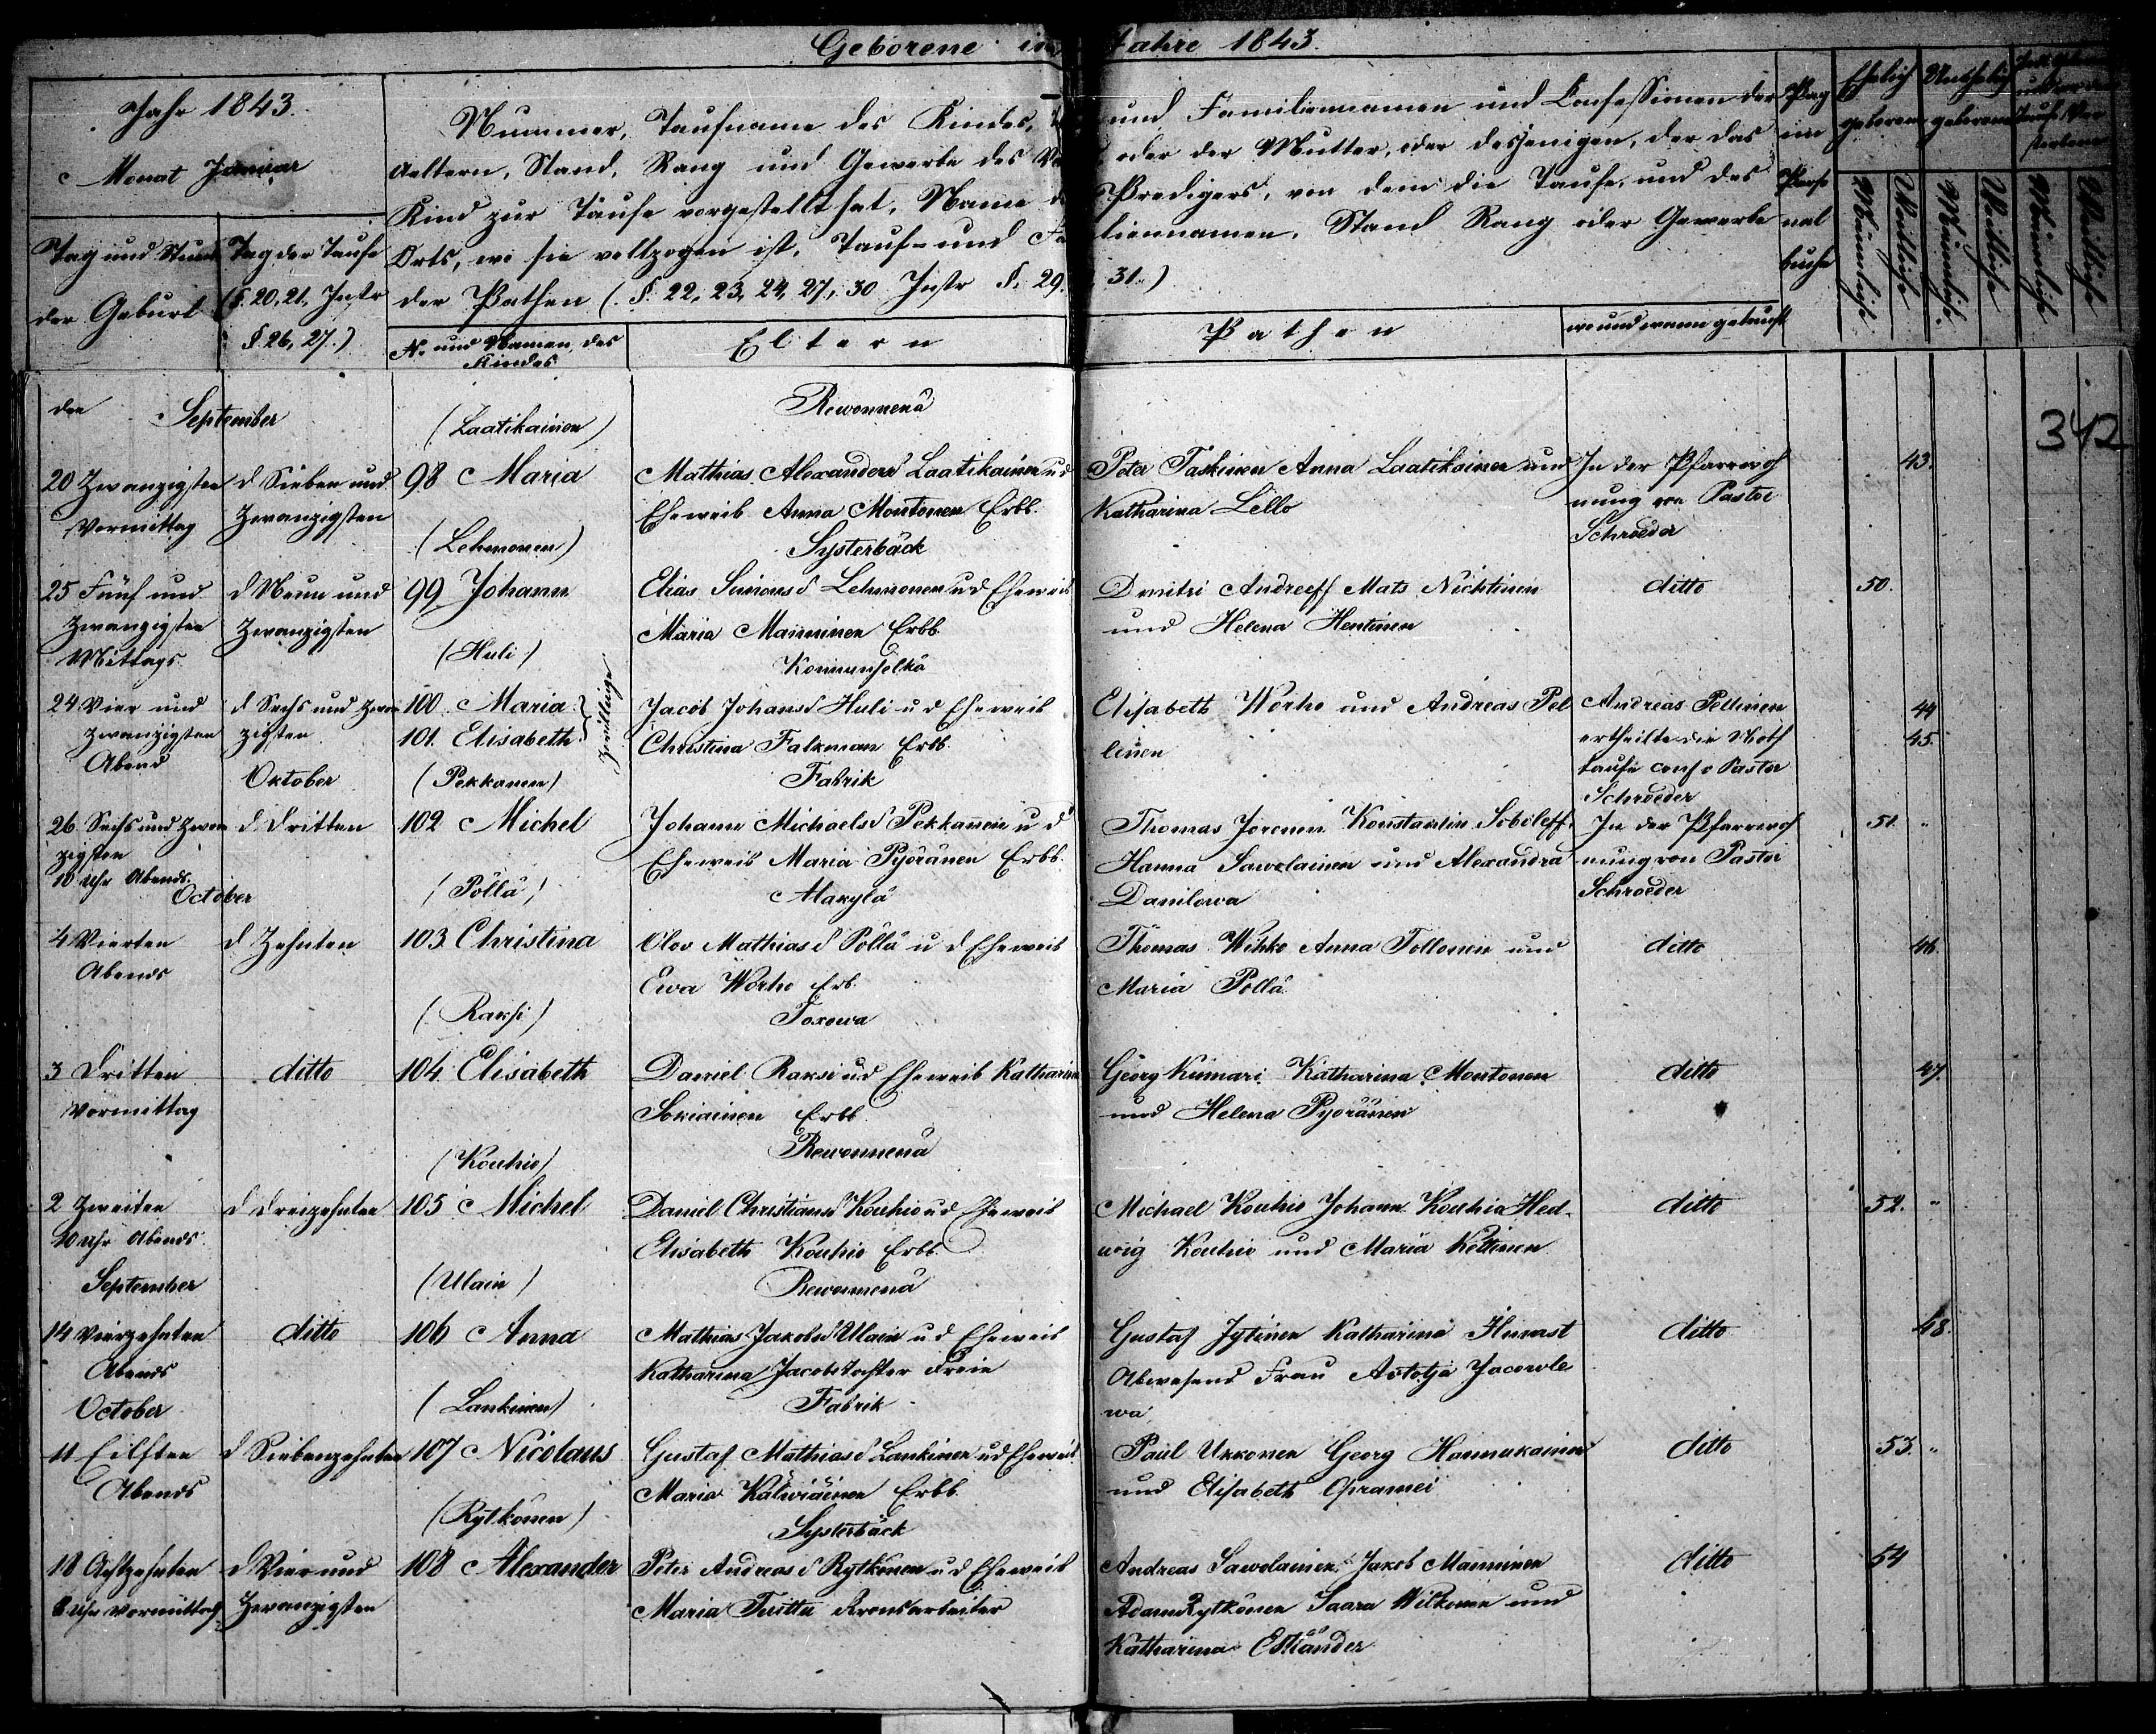 Geborene im Jahre 1843.
Jahr 1843.
Monat Januar
Tag und Stunde
der Geburt
Tag der Taufe
(§. 20, 21, Instr
§. 26, 27.)
Nummer, Taufname des Kindes, und Familiennamen und Confessionen der
Aeltern, Stand, Rang und Gewerbe des oder der Mutter, oder desjenigen, der das
Kind zur Taufe vorgestellt hat, Name Predigers, von dem die Taufe, und des
Orts, wo sie vollzogen ist, Tauf- und liennamen, Stand Rang oder Gewerbe
der Pathen (. §. 22, 23, 24, 27, 30 Instr §. 29. 31.)
N. und Namen des
Kindes
Eltern
Pathen
wo und wann getauft
Pag
im
Perso
nal
buche
Ehelich
geboren
Unehelich
geboren
Männliche
Weibliche
Männliche
Weibliche
Männliche
Weibliche
342
den September
(Laatikainen)
Rewonnenä
20 Zwanzigsten d Sieben und 98 Maria Mathias Alexanders Laatikainen u d Peter Taskinen Anna Laatikainen und In der Pfarrwoh 43.
Vormittag Zwanzigsten Eheweib Anna Montonen Erbb. Katharina Lello nung von Pastor
Schroeder
(Lehmonen) Systerbäck
25 Fünf und d Neun und 99 Johann Elias Simons Lehmonen u d Eheweib Dmitri Andreeff Mats Nichtinen ditto 50.
Zwanzigsten Zwanzigsten Maria Manninen Erbb. und Helena Hentinen
Mittags
(Huli) Konnunselkä
24 Vier und d Sechs und Zwan 100. Maria Zwillinge Jacob Johans Huli u d Eheweib Elisabeth Worho und Andreas Pel Andreas Pellinen 44
zwanzigsten zigsten 101. Elisabeth Christina Falkman Erbb. linen ertheilte die Noth 45.
Abend taufe conf. Pastor
Schroeder
Oktober (Pekkanen) Fabrik
26 Sechs und Zwan d Dritten 102 Michel Johann Michaels Pekkanen u d Thomas Joronen Konstantin Soboleff In der Pfarrwoh 51. "
zigsten Eheweib Maria Pyöränen Erbb. Hanna Sawolainen und Alexandra nung von Pastor
10 Uhr Abends. Danilowa Schroeder
October (Pöllä) Makylä
4 Vierten d Zehnten 103 Christina Olov Mathias Pöllä u d Eheweib Thomas Wihko Anna Tollonen und ditto 46.
Abends Ewa Worho Erb. Maria Pöllä
(Raksi) Toxowa
3 Dritten ditto 104 Elisabeth Daniel Raksi u d Eheweib Katharina Georg Kumari Katharina Montonen ditto 47.
Vormittag Sokiainen Erbb. und Helena Pyöränen
(Kouhio) Rewonnenä
2 Zweiten d Dreizehnten 105 Michel Daniel Christians Kouhio u d Eheweib Michael Kouhio Johann Kouhio Hed- ditto 52. "
10 Uhr Abends Elisabeth Kouhio Erbb. wig Kouhio und Maria Kettinen
September (Ulain) Rewonnenä
14 Vierzehnten ditto 106 Anna Mathias Jakobs Ulain u d Eheweib Gustaf Jytinen Katharina Ihmast ditto 48.
Abends Katharina Jacobstochter Freie Abwesend Frau Avdotja Jacowle
wa
October (Lankinen) Fabrik
11 Eilften d Siebenzehnten 107 Nicolaus Gustaf Mathias Lankinen u d Eheweib Paul Ukkonen Georg Hannukainen ditto 53. "
Abends Maria Kälwiäinen Erbb. und Elisabeth
(Rytkönen) Systerbäck
18 Achtzehnten d Vier und 108 Alexander Peter Andreas Rytkönen u d Eheweib Andreas Sawolainen Jakob Manninen ditto 54
Uhr Vormittag Zwanzigsten Maria Tuittu Kronsarbeiter Adam Rytkönen Saara Wilkonen und
Katharina Estlander